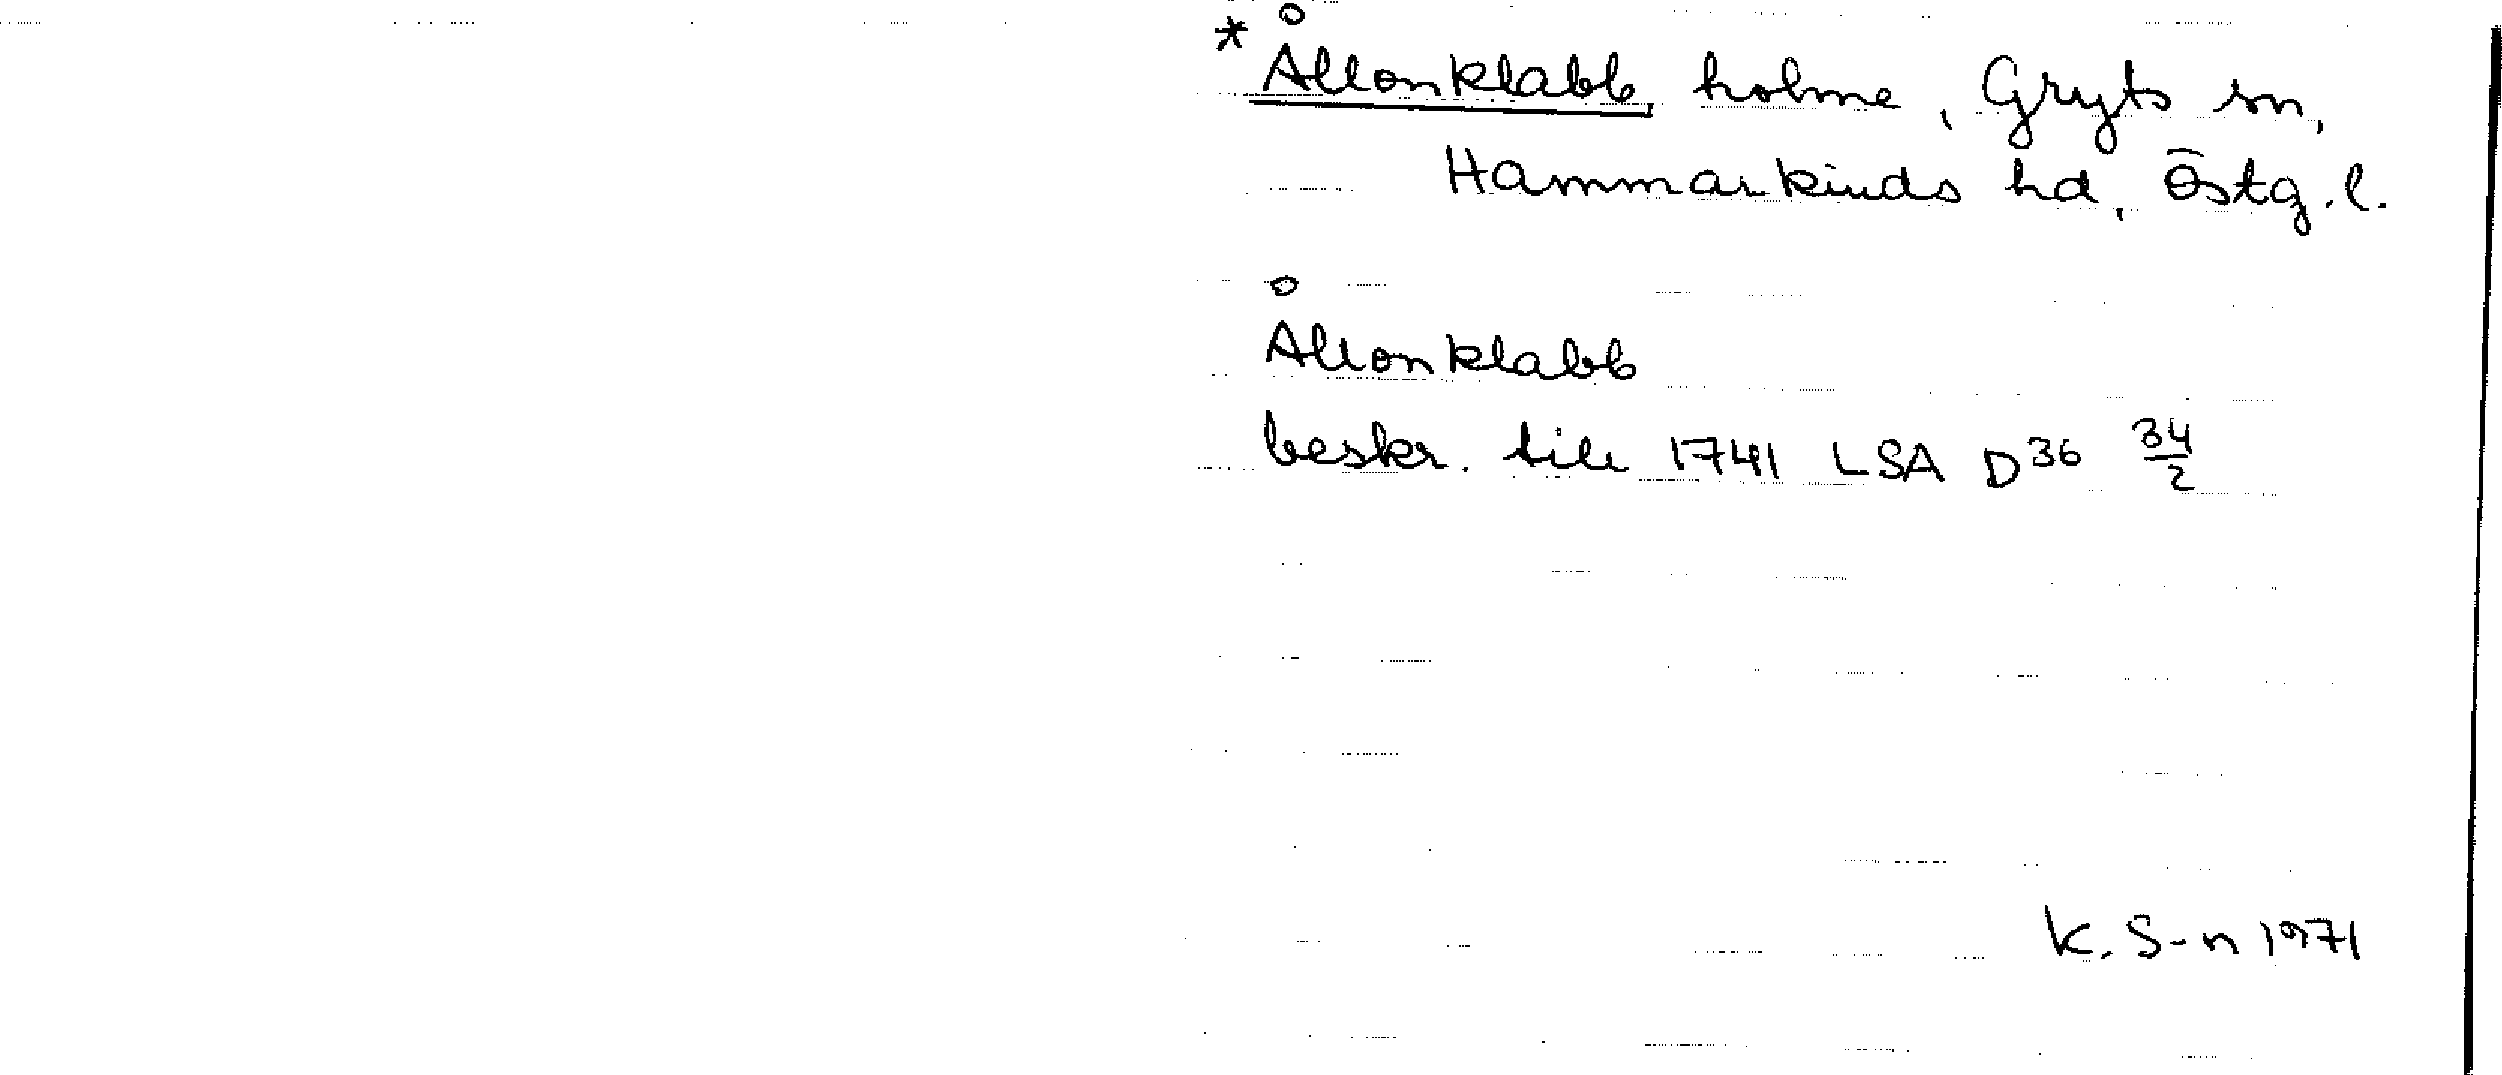 * Ållonklabb holme, Gryts sn,
Hammarkinds hd, Östg.l.
Ållonklabb
beskr. till 1741 LSA D36 34/2
K. S-n 1971